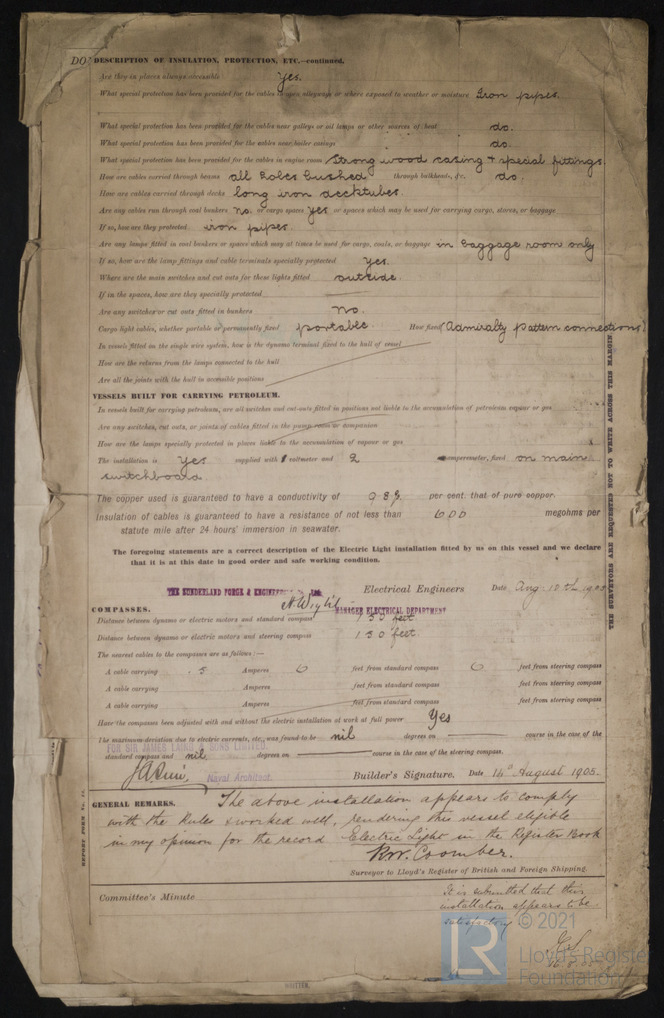 DESCRIPTION OF INSULATION, PROTECTION, ETC.—continued.
Are they in places always accessible yes.
What special protection has been provided for the cables in open alleyways or where exposed to weather or moisture Iron pipes.
What special protection has been provided for the cables near galleys or oil lamps or other sources of heat do.
What special protection has been provided for the cables near boiler casings do.
What special protection has been provided for the cables in engine room Strong wood casing & special fittings.
How are cables carried through beams all holes bushed through bulkheads, &c. do.
How are cables carried through decks long iron decktubes.
Are any cables run through coal bunkers no. or cargo spaces yes or spaces which may be used for carrying cargo, stores, or baggage
If so, how are they protected iron pipes
Are any lamps fitted in coal bunkers or spaces which may at times be used for cargo, coals, or baggage in baggage room only
If so, how are the lamp fittings and cable terminals specially protected Yes.
Where are the main switches and cut outs for these lights fitted outside
If in the spaces, how are they specially protected
Are any switches or cut outs fitted in bunkers no.
Cargo light cables, whether portable or permanently fixed portable How fixed Admiralty pattern connections
In vessels fitted on the single wire system, how is the dynamo terminal fixed to the hull of vessel
How are the returns from the lamps connected to the hull
Are all the joints with the hull in accessible positions
VESSELS BUILT FOR CARRYING PETROLEUM.
In vessels built for carrying petroleum, are all switches and cut-outs fitted in positions not liable to the accumulation of petroleum vapour or gas
Are any switches, cut outs, or joints of cables fitted in the pump room or companion
How are the lamps specially protected in places liable to the accumulation of vapour or gas
The installation is yes supplied with 1 voltmeter and 2 amperemeter, fixed on main
switchboard
The copper used is guaranteed to have a conductivity of 98% per cent. that of pure copper.
Insulation of cables is guaranteed to have a resistance of not less than 600 megohms per
statute mile after 24 hours' immersion in seawater.
The foregoing statements are a correct description of the Electric Light installation fitted by us on this vessel and we declare
that it is at this date in good order and safe working condition.
THE SUNDERLAND FORGE & ENGINEERING Electrical Engineers Date Aug: 10th 1905
MANAGER ELECTRICAL DEPARTMENT
COMPASSES.
Distance between dynamo or electric motors and standard compass 130 feet
Distance between dynamo or electric motors and steering compass 130 feet
The nearest cables to the compasses are as follows:—
A cable carrying .5 Amperes 6 feet from standard compass 6 feet from steering compass
A cable carrying Amperes feet from standard compass feet from steering compass
A cable carrying Amperes feet from standard compass feet from steering compass
Have the compasses been adjusted with and without the electric installation at work at full power Yes
The maximum deviation due to electric currents, etc., was found to be nil degrees on course in the case of the
FOR SIR JAMES LAING & SONS LIMITED.
standard compass and nil degrees on course in the case of the steering compass.
Naval Architect. Builder's Signature. Date 14th August 1905.
GENERAL REMARKS. The above installation appears to comply
with the Rules & worked well, rendering this vessel eligible
in my opinion for the record Electric Light in the Register Book
R.W. Coomber.
Surveyor to Lloyd's Register of British and Foreign Shipping.
Committee's Minute
It is submitted that this
installation appears to be
satisfactory
THE SURVEYORS ARE REQUESTED NOT TO WRITE ACROSS THIS MARGIN
LR
© 2021
Lloyd's Register
Foundation